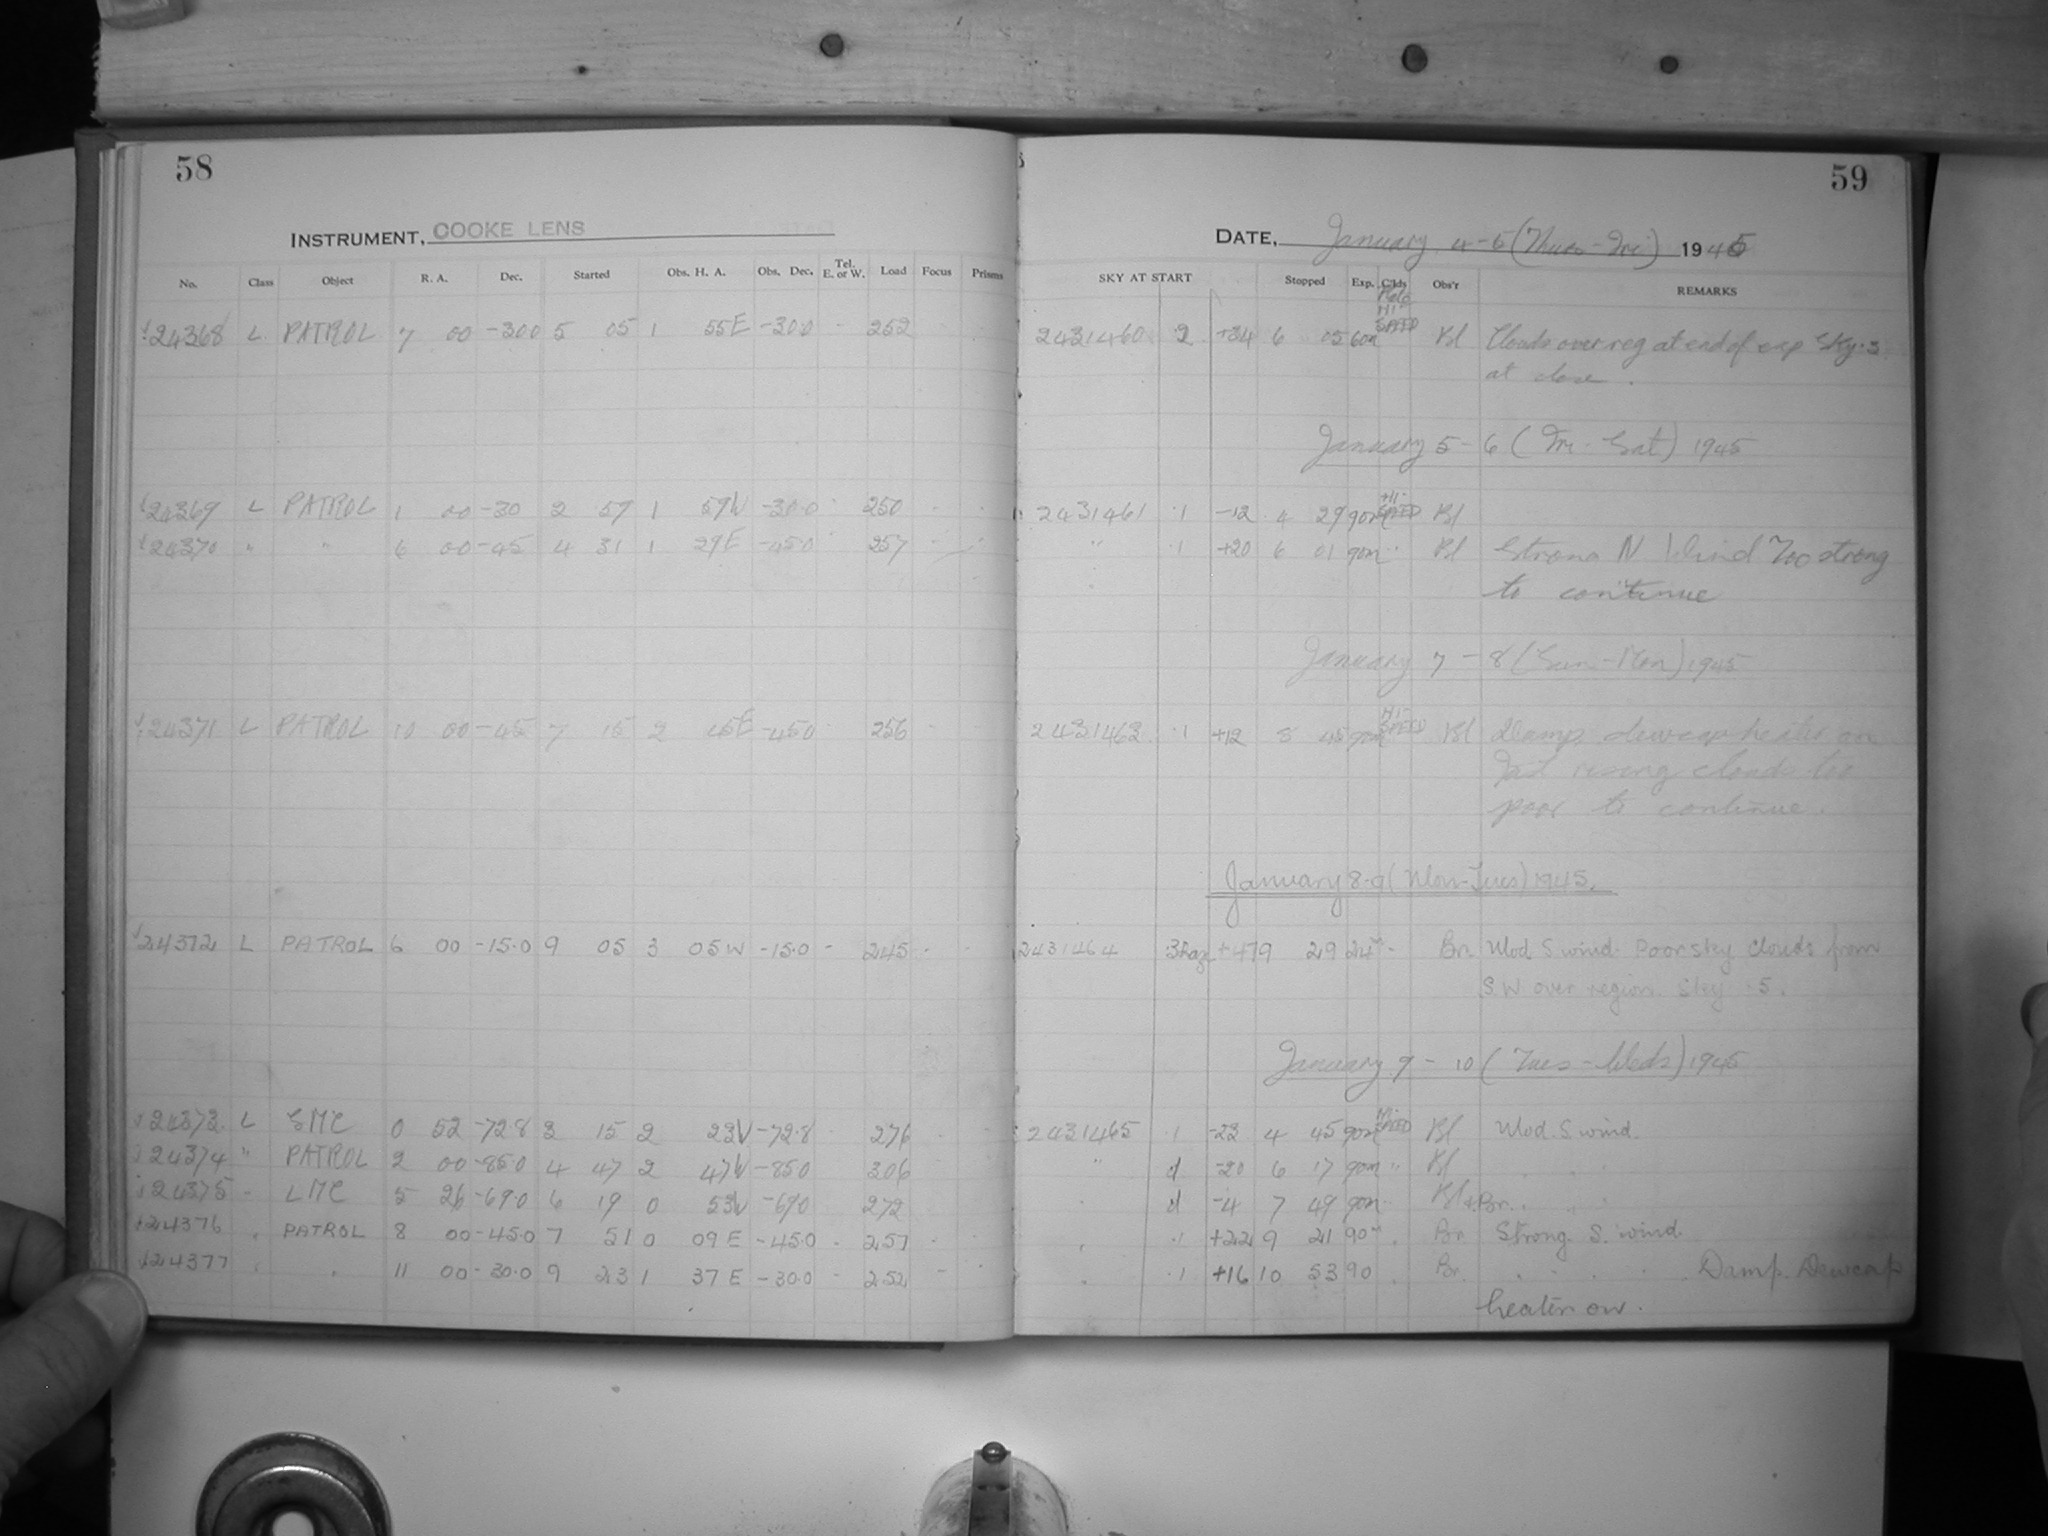 58
INSTRUMENT, COOKE LENS
No. Class Object R. A. Dec. Started Obs. H. A. Obs. Dec. Tel. E. or W. Load Focus Prisms
24368 L PATROL 7 00 -30.0 5 05 1 55E -30.0 - 252
24369 L PATROL 1 00 -30 2 59 1 59W -30.0 250
24370 " " 6 00 -45 4 31 1 29E -45.0 257
24371 L PATROL 10 00 -45 7 15 2 45E -45.0 256
24372 L PATROL 6 00 -15.0 9 05 3 05W -15.0 - 245
24373 L SMC 0 52 -72.8 3 15 2 23W -72.8 276
24374 " PATROL 2 00 -85.0 4 47 2 47W -85.0 306
24375 LMC 5 26 -69.0 6 19 0 53W -69.0 272
24376 PATROL 8 00 -45.0 7 51 0 09E -45.0 257
24377 11 00 -30.0 9 23 1 37E -30.0 - 252
59
DATE, January 4-5 (Thurs-Fri) 1945
SKY AT START Stopped Exp. Clds Obs'r REMARKS
HI-SPEED
2431460 2 +34 6 05 60m Bl Clouds over reg at end of exp Sky .3
at close.
January 5-6 (Fri-Sat) 1945
2431461 .1 -12 4 29 90m HI-SPEED Bl
" .1 +20 6 01 90m " Bl Strong N Wind Too strong
to continue
January 7-8 (Sun-Mon) 1945
2431463 .1 +12 8 45 90m HI-SPEED Bl Damp dewcap heater on
Fast rising clouds too
poor to continue.
January 8-9 (Mon-Tues) 1945.
2431464 .3 haze +47 9 29 24m - Br. Mod S wind. Poor sky clouds from
SW over region. Sky .5.
January 9-10 (Tues-Weds) 1945
2431465 .1 -22 4 45 90m HI-SPEED Bl Mod. S wind.
" d -20 6 17 90m " Bl
d -4 7 49 90m Bl+Br.
.1 +22 9 21 90m Br Strong S. wind.
.1 +16 10 53 90 Br. Damp. Dewcap
heater on.